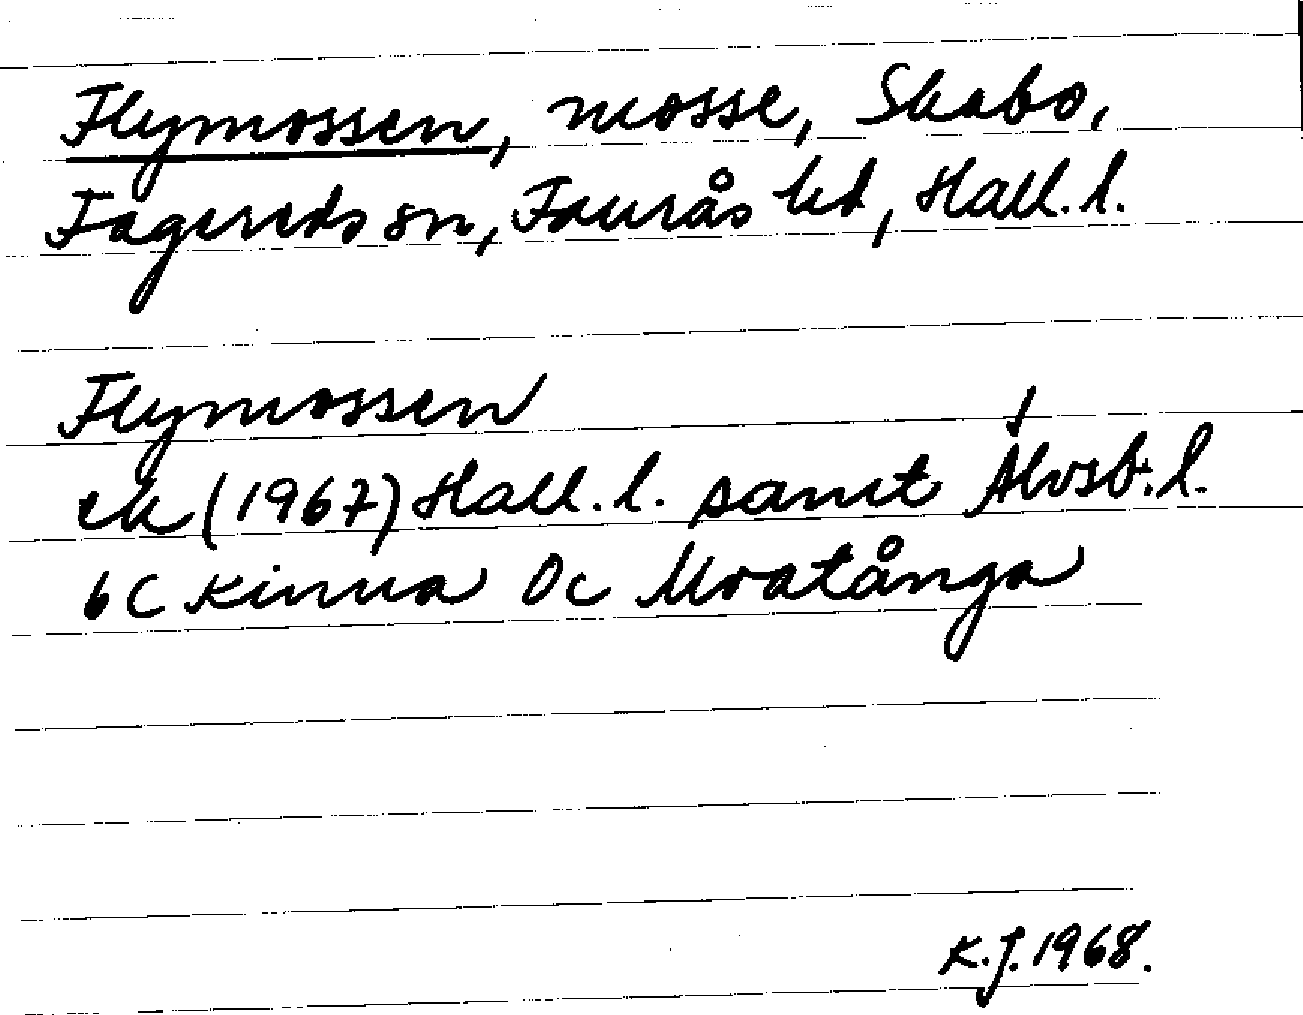 Flymossen, mosse, Skabo,
Fagereds sn, Faurås hd, Hall. l.
Flymossen
ek (1967) Hall. l. samt Älvsb. l.
6C Kinna 0c Mvatånga
K.J. 1968.